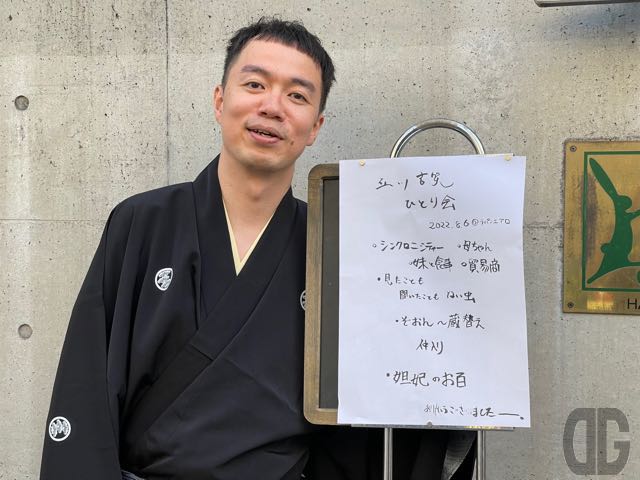 立川吉笑
ひとり会
2022.8.6@ラパン・エアロ
・シンクロニシティー ・母ちゃん
・妹と食事 ・貿易商
・見たことも
聞いたこともない虫
・ぞおん〜蔵替え
仲入り
・妲妃のお百
ありがとうございました―。
HA
DG